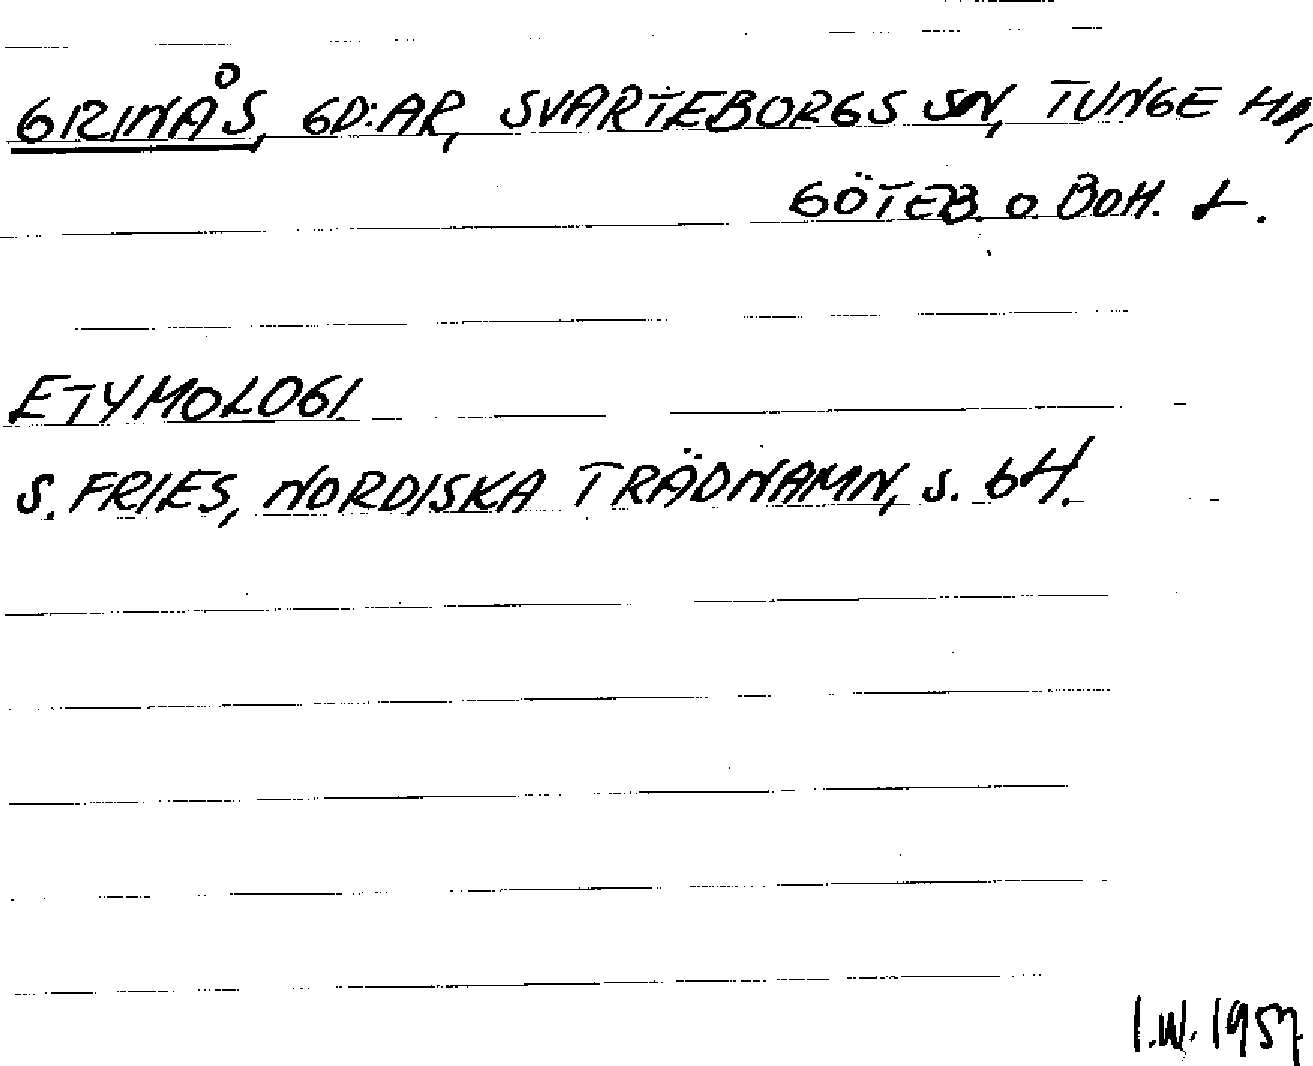 GRINÅS, GD:AR, SVARTEBORGS SN, TUNGE HD,
GÖTEB. O BOH. L.
ETYMOLOGI
S. FRIES, NORDISKA TRÄDNAMN, S. 64.
1957